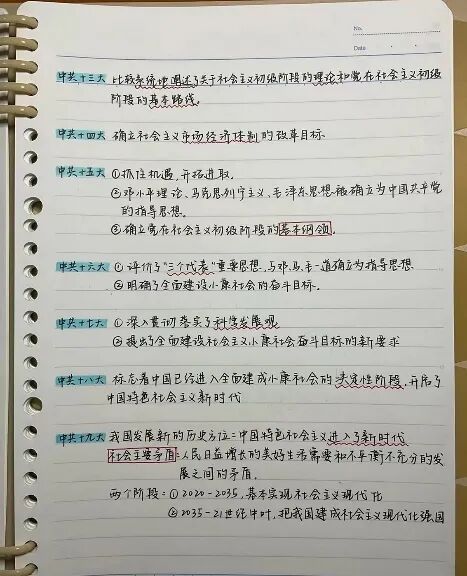 No.
Date
中共十三大 比较系统地阐述了关于社会主义初级阶段的理论和党在社会主义初级
阶段的基本路线。
中共十四大 确立社会主义市场经济体制的改革目标
中共十五大 ①抓住机遇,开拓进取。
②邓小平理论、马克思列宁主义、毛泽东思想被确立为中国共产党
的指导思想。
③确立党在社会主义初级阶段的基本纲领。
中共十六大 ①评价了"三个代表"重要思想,与邓、马、毛一道确立为指导思想
②明确了全面建设小康社会的奋斗目标。
中共十七大 ①深入贯彻落实了科学发展观
②提出了全面建设社会主义小康社会奋斗目标的新要求
中共十八大 标志着中国已经进入全面建成小康社会的决定性阶段,开启了
中国特色社会主义新时代
中共十九大 我国发展新的历史方位:中国特色社会主义进入了新时代
社会主要矛盾:人民日益增长的美好生活需要和不平衡不充分的发
展之间的矛盾。
两个阶段:①2020-2035,基本实现社会主义现代化
②2035-21世纪中叶,把我国建成社会主义现代化强国